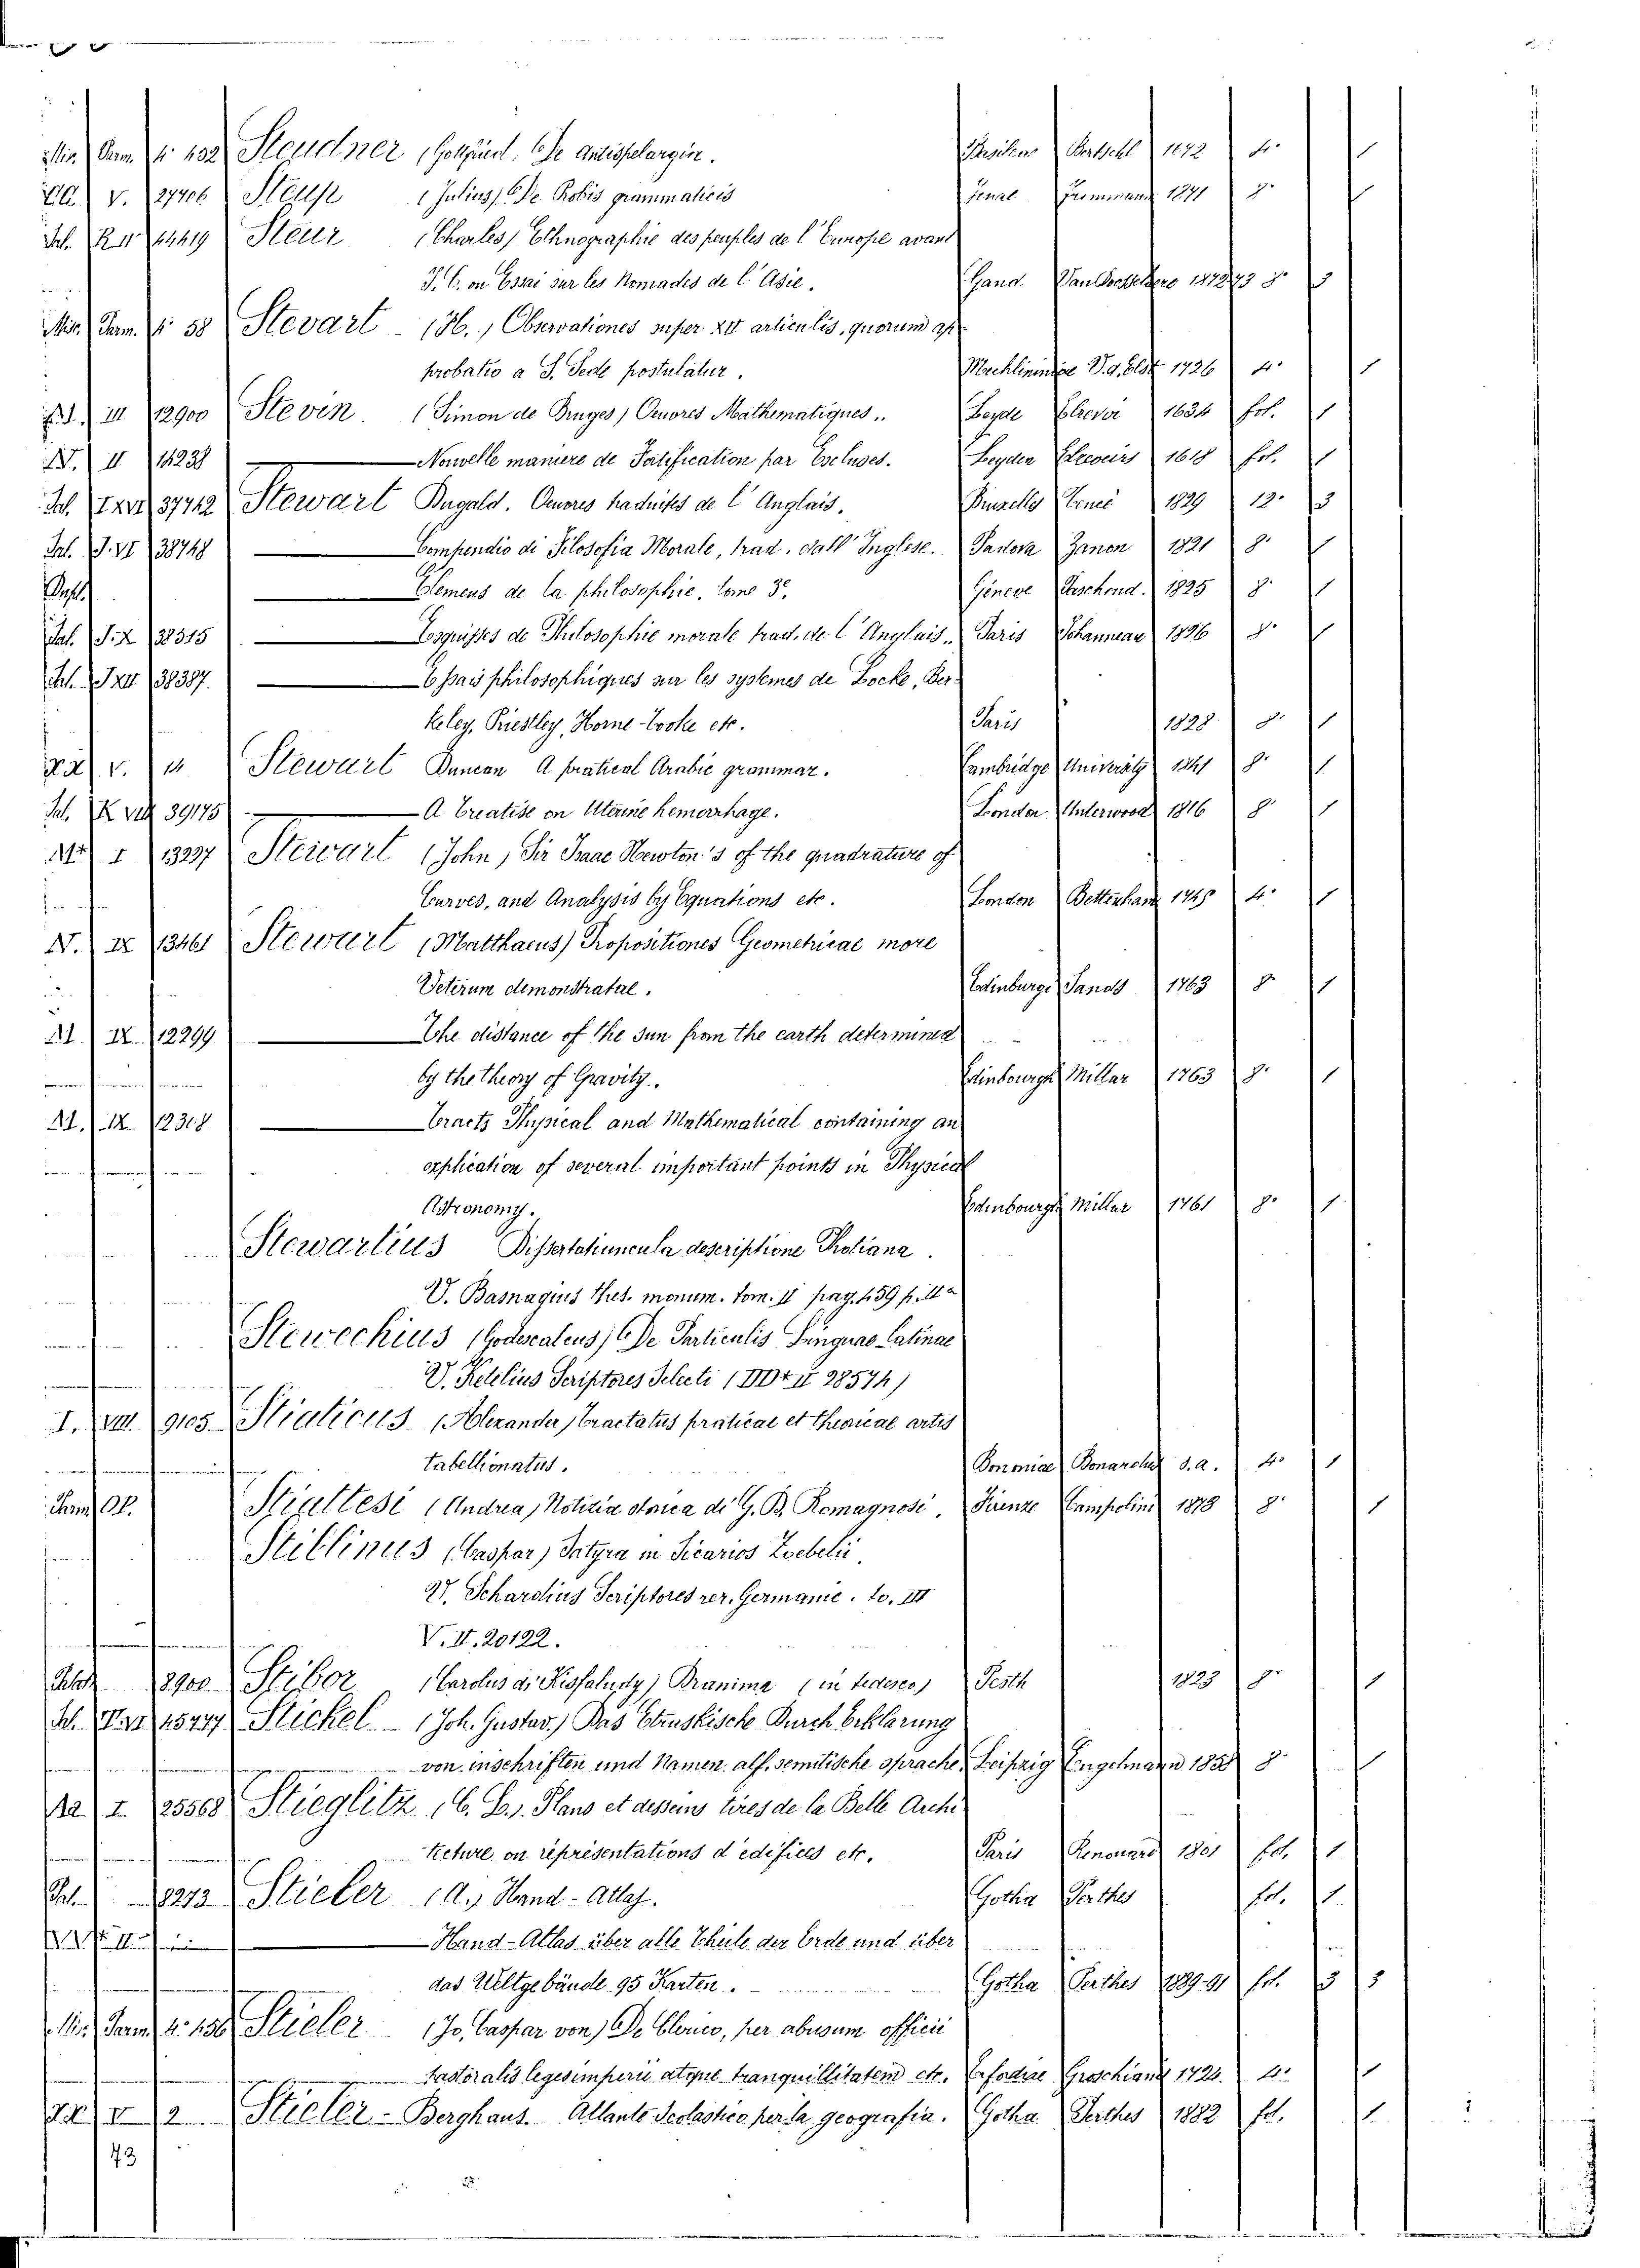 Mis. Germ. 4° 432 Steudner (Gottfried, De antispelargia. Bertschl 1672 4° 1
V. 27706 Steup (Julius) De Probis grammaticis Jenae Frommann 1871 8° 1
Sal. R II 44419 Steur (Charles) Ethnographie des peuples de l'Europe avant
J. C. ou Essai sur les Nomades de l'Asie. Gand 1872-73 8° 3
Mis. Germ. 4° 58 Stevart (H., Observationes super XII articulis, quorum ap
probatio a S. Sede postulatur. V. d. Elst 1726 4° 1
III 12900 Stevin (Simon de Bruges) Oeuvres Mathematiques. Leyde Elsevir 1634 fol. 1
N. II 14238 — Nouvelle maniere de Fortification par Escluses. Leyden Elzeviers 1618 fol. 1
Sal. I XVI 37742 Stewart Dugald. Oeuvres traduites de l'Anglais. Bruxelles 1829 12° 3
Sal. J. VI 38748 — Compendio di Filosofia Morale, trad. dall'Inglese. Padova Zenon 1821 8° 1
Dupl. — Elemens de la philosophie, tome 3e. Géneve Paschoud. 1825 8° 1
Sal. J. X 38515 — Esquisses de Philosophie morale trad. de l'Anglais. Paris Johanneau 1826 8° 1
Sal. J XII 38387. — Essais philosophiques sur les systemes de Locke, Ber-
keley, Priestley, Horne-Tooke etc. Paris 1828 8° 1
V. 14 Stewart Duncan A pratical Arabic grammar. Cambridge University 1841 8° 1
Sal. K VIII 39175 — A Treatise on Uterine hemorrhage. London Underwood 1816 8° 1
I 13237 Stewart (John) Sir Isaac Newton's of the quadrature of
Curves, and Analysis by Equations etc. London Bettenham 1745 4° 1
N. IX 13461 Stewart (Matthaeus) Propositiones Geometricae more
Veterum demonstratae. Edinburgi Sands 1763 8° 1
M. IX. 12299 — The distance of the Sun from the earth determined
by the theory of Gravity. Edinbourgh Millar 1763 8° 1
M. IX. 12308 — Tracts Physical and Mathematical containing an
explication of several important points in Physical
Astronomy. Edenbourgh Millar 1761 8° 1
Stewartius Dissertatiuncula descriptione Troiana.
V. Basnagius Thes. monum. tom. II pag. 459 p. IIa
Stewechius (Godescalcus) De Particulis Linguae Latinae
V. Ketelius Scriptores Selecti
I. VIII. 9105 Stiaticus (Alexander) Tractatus praticae et theoricae artis
tabellionatus. Bononiae s.a. 4° 1
Stiattesi (Andrea) Notizia storica di G. B. Romagnosi. Firenze Campolini 1878 8° 1
Stiblinus (Caspar) Satyra in Sicarios Zoebelii.
V. Schardius Scriptores rer. Germanic. to. III
V. II. 20122.
8900 Stibor (Carolus di Kisfaludy) Branima (in tedesco) Pesth 1823 8° 1
45747 Stickel (Joh. Gustav.) Das Etruskische Durch Erklärung
von inschriften und Namen als semitische sprache. Leipzig Engelmann 1858 8° 1
I. 25568 Stieglitz (C. L.). Plans et desseins tires de la Belle Archi
tecture, ou représentations d'edifices etc. Paris Renouard 1801 fol. 1
Sal. 8273 Stieler (A.) Hand-Atlas. Gotha Perthes fol. 1
— Hand-Atlas über alle Theile der Erde und über
das Weltgebäude 95 Karten. Gotha Perthes 1889-91 fol. 3 3
Mis. Germ. 4° 156 Stieler (Jo. Caspar von) De Clerico, per abusum officii
Pastoralis leges imperii atque tranquillitatem etc. Erfordiae Groschiana 1724. 4° 1
V 2 Stieler - Berghaus. Atlante Scolastico per la geografia. Gotha Perthes 1882 fol. 1
43